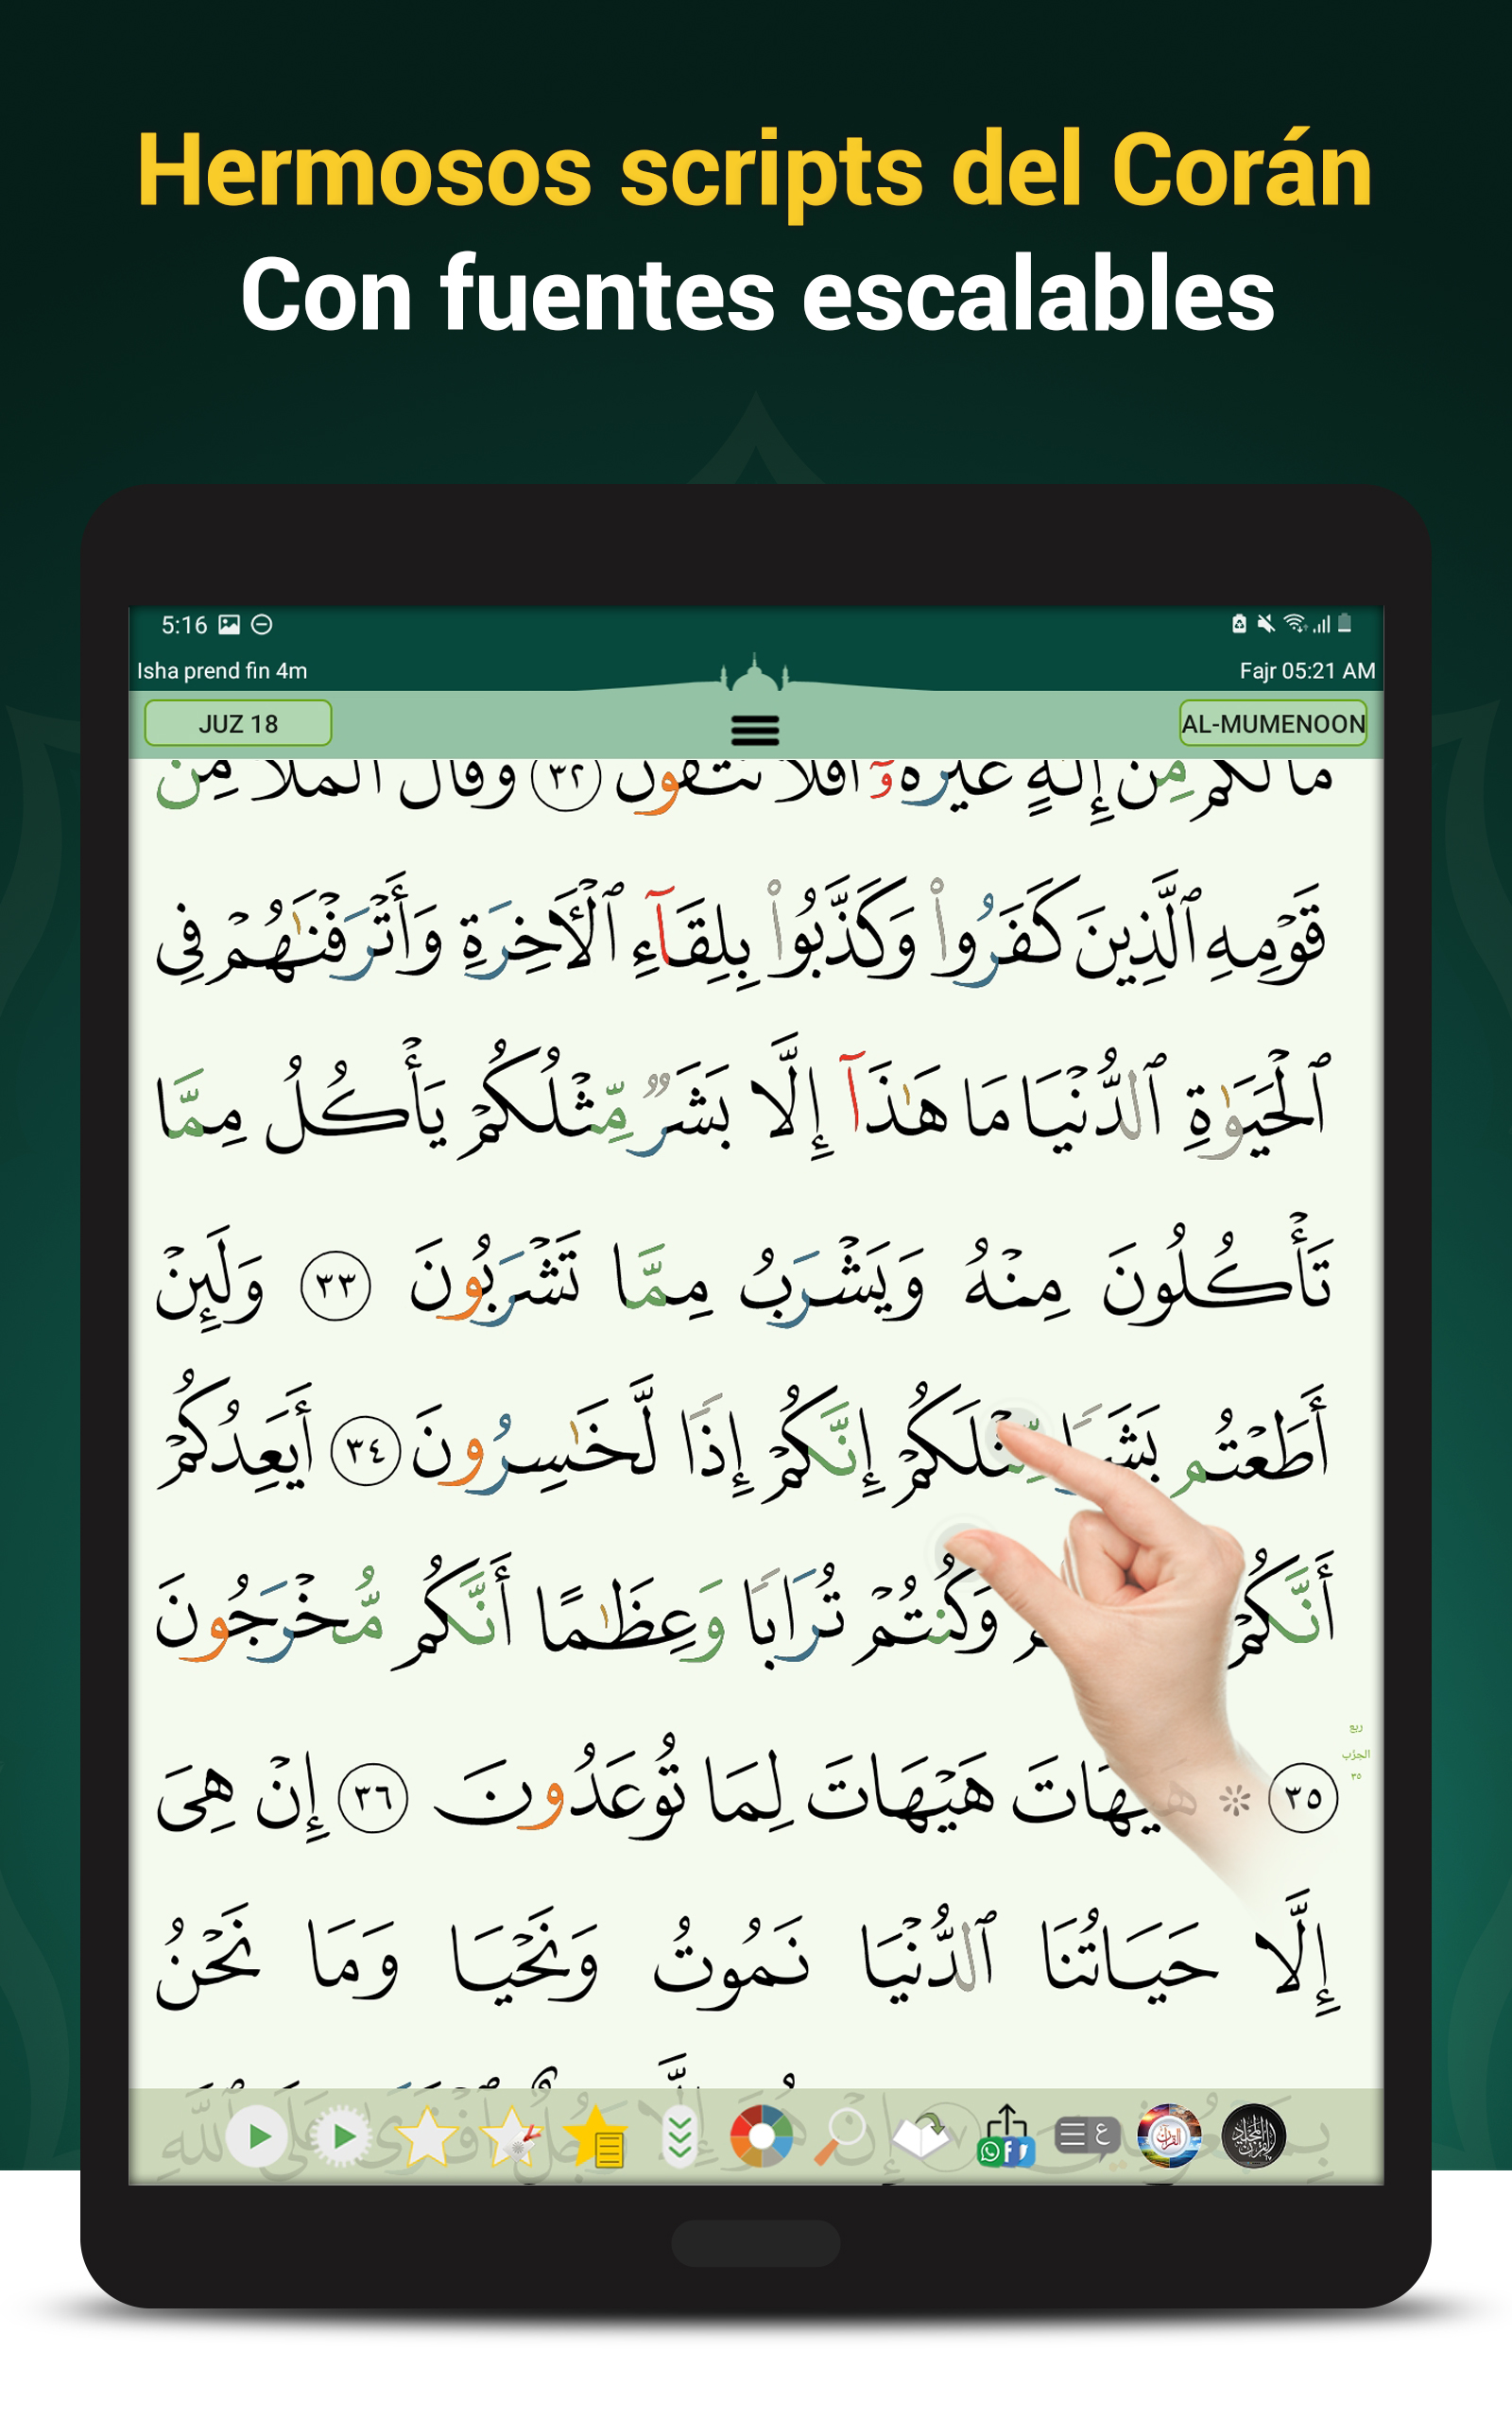 Hermosos scripts del Corán
Con fuentes escalables
5:16
Isha prend fin 4m
Fajr 05:21 AM
JUZ 18
AL-MUMENOON
ما لكم من إله غيره أفلا تتقون ٣٢ وقال الملأ من
قَوْمِهِ ٱلَّذِينَ كَفَرُوا۟ وَكَذَّبُوا۟ بِلِقَآءِ ٱلْأَخِرَةِ وَأَتْرَفْنَٰهُمْ فِى
ٱلْحَيَوٰةِ ٱلدُّنْيَا مَا هَٰذَآ إِلَّا بَشَرٌ مِّثْلُكُمْ يَأْكُلُ مِمَّا
تَأْكُلُونَ مِنْهُ وَيَشْرَبُ مِمَّا تَشْرَبُونَ ٣٣ وَلَئِنْ
أَطَعْتُم بَشَرًا مِّثْلَكُمْ إِنَّكُمْ إِذًا لَّخَٰسِرُونَ ٣٤ أَيَعِدُكُمْ
أَنَّكُمْ وَكُنتُمْ تُرَابًا وَعِظَٰمًا أَنَّكُم مُّخْرَجُونَ
٣٥ ۞ هَيْهَاتَ هَيْهَاتَ لِمَا تُوعَدُونَ ٣٦ إِنْ هِىَ
ربع
الحزب
٣٥
إِلَّا حَيَاتُنَا ٱلدُّنْيَا نَمُوتُ وَنَحْيَا وَمَا نَحْنُ